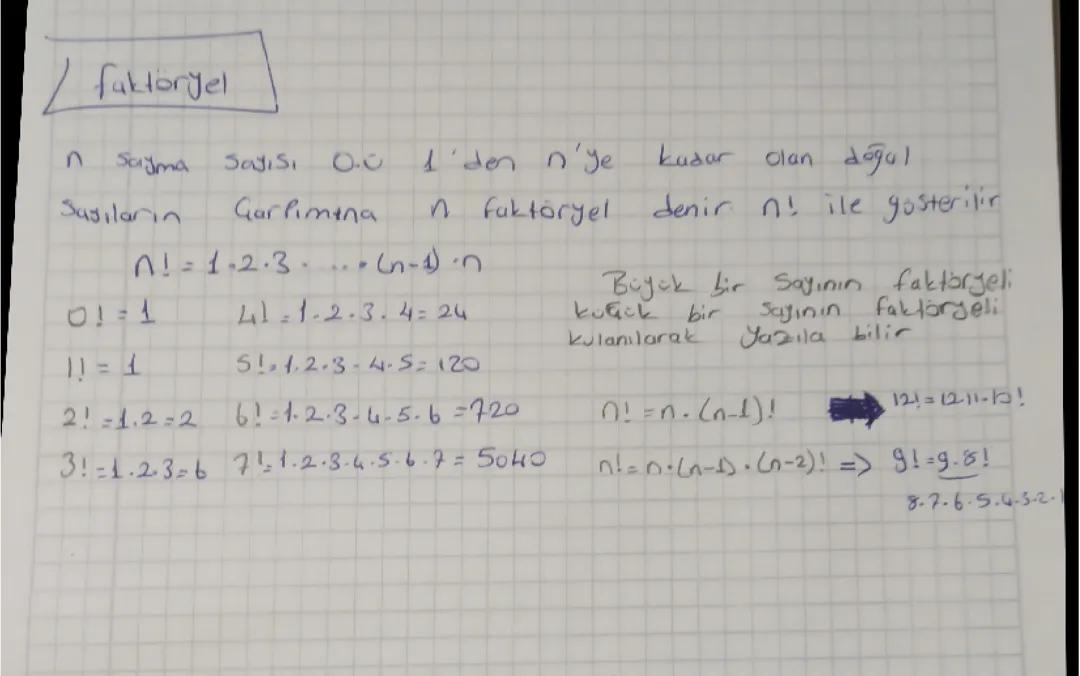 faktöryel
n sayma sayısı o.ü 1'den n'ye kadar olan doğal
sayıların Çarpımına n faktöryel denir n! ile gösterilir
n! = 1.2.3. .... (n-1).n
0! = 1
1! = 1
2! = 1.2 = 2
3! = 1.2.3 = 6
4! = 1.2.3.4 = 24
5! = 1.2.3.4.5 = 120
6! = 1.2.3.4.5.6 = 720
7! = 1.2.3.4.5.6.7 = 5040
Büyük bir sayının faktöryeli
küçük bir sayının faktöryeli
kulanılarak yazıla bilir
n! = n.(n-1)! 12! = 12.11.10!
n! = n.(n-1).(n-2)! => 9! = 9.8!
8.7.6.5.4.3.2.1